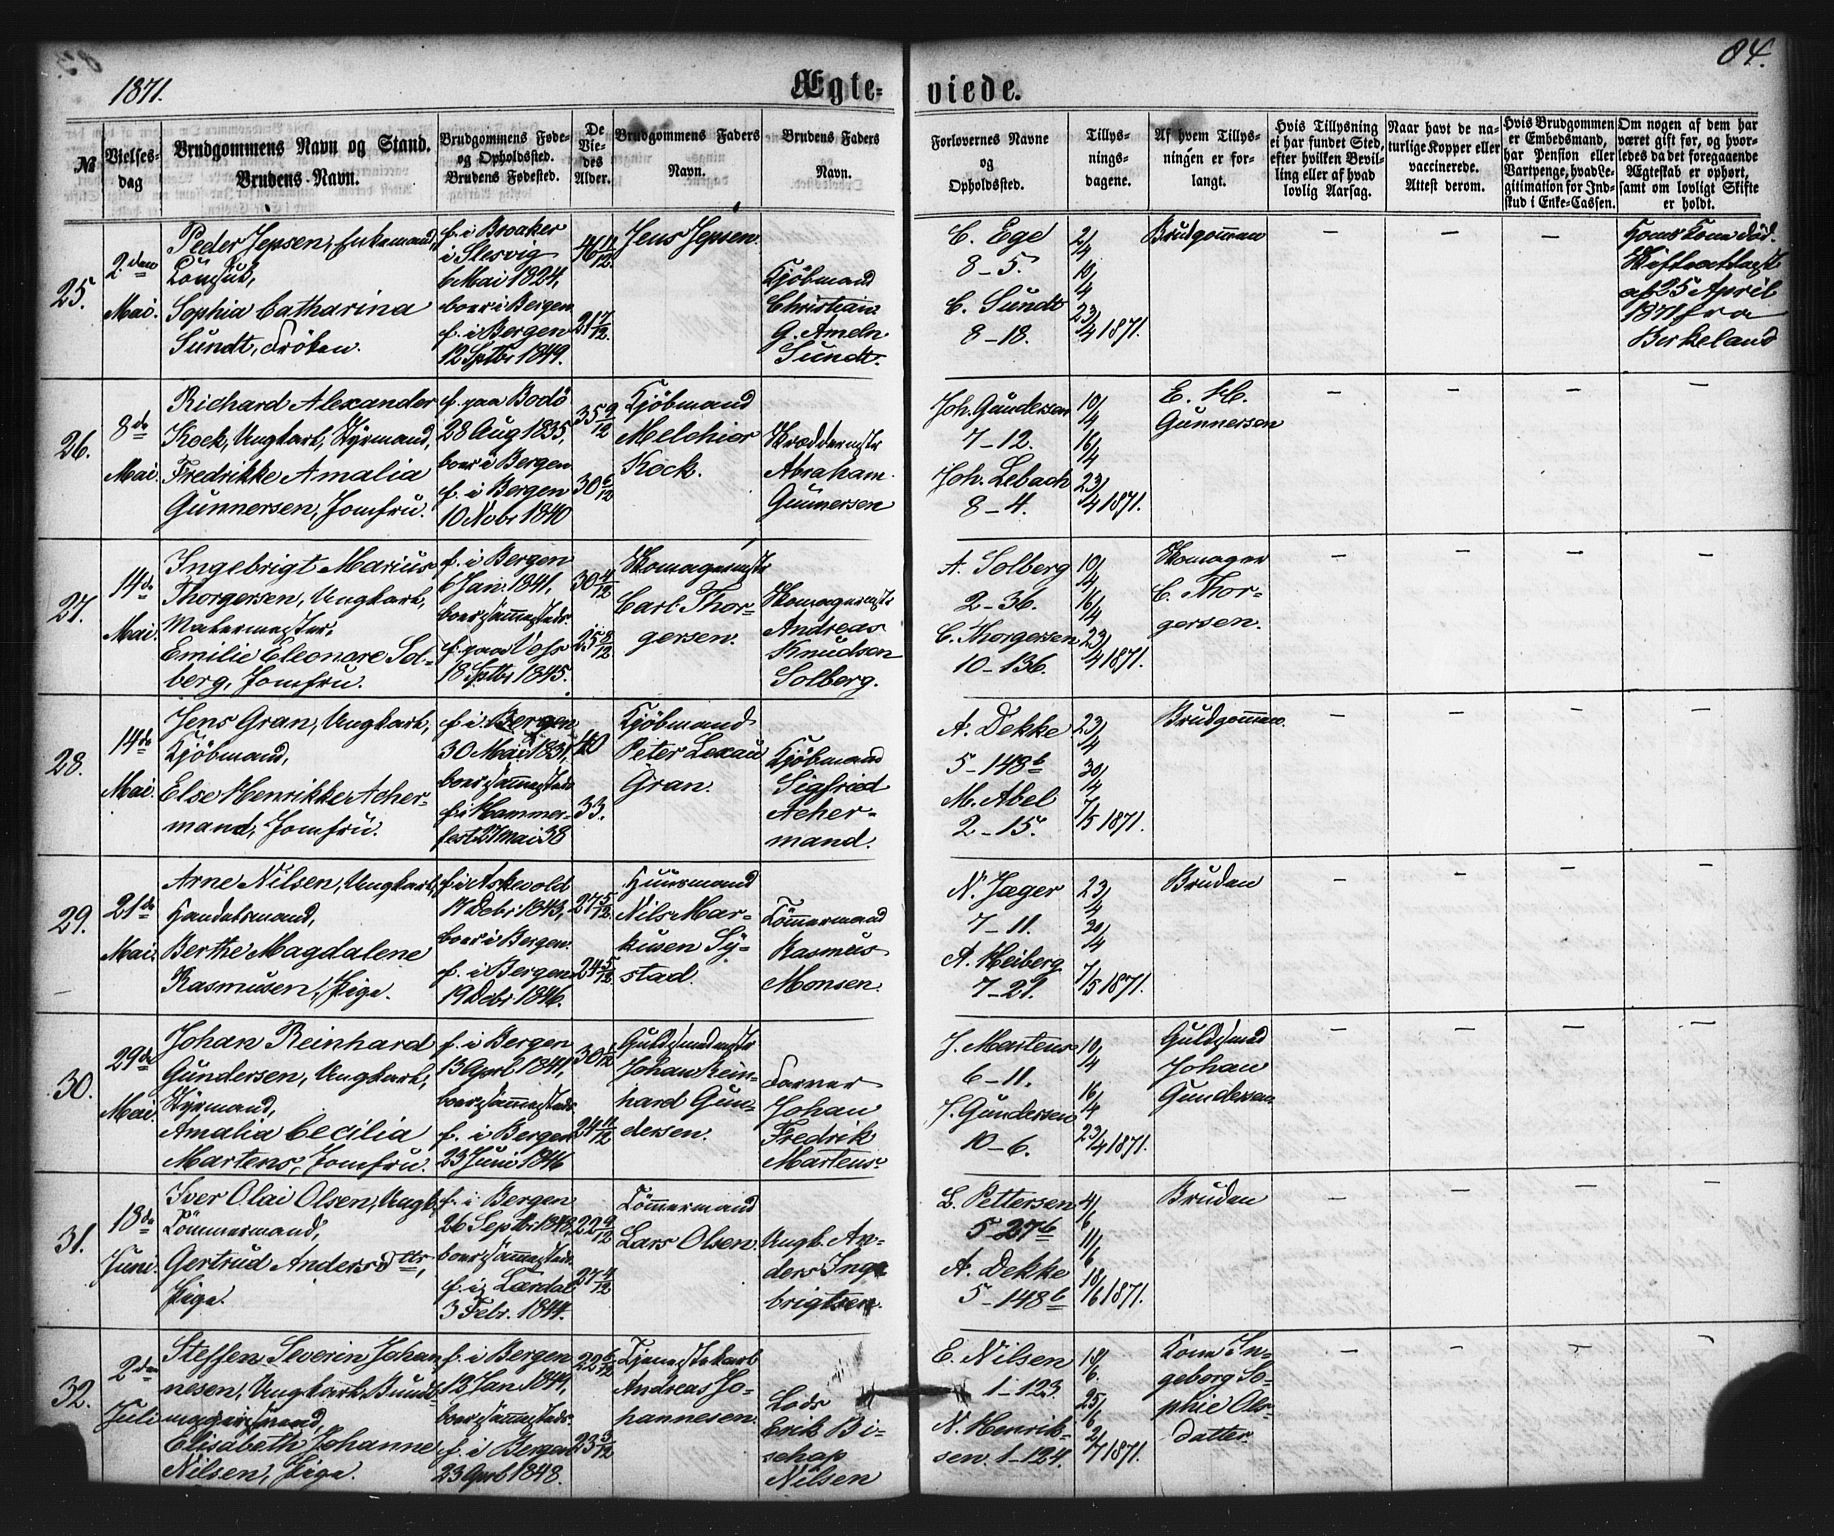 1871.
Ægte-
viede.
84.
№
Vielses-
dag
Brudgommens Navn og Stand.
Brudens Navn.
Brudgommens Føde-
og Opholdssted.
Brudens Fødested.
De
Vie-
des
Alder.
Brudgommens Faders
Navn.
Brudens Faders
Navn.
Forlovernes Navne
og
Opholdssted.
Tillys-
nings-
dagene.
Af hvem Tillys-
ningen er for-
langt.
Hvis Tillysning
ei har fundet Sted,
efter hvilken Bevil-
ling eller af hvad
lovlig Aarsag.
Naar havt de na-
turlige Kopper eller
vaccinerede.
Attest derom.
Hvis Brudgommen
er Embedsmand,
har Pension eller
Vartpenge, hvad Le-
gitimation for Ind-
skud i Enke-Cassen.
Om nogen af dem har
været gift før, og hvor-
ledes da det foregaaende
Ægteskab er ophørt,
samt om lovligt Skifte
er holdt.
25.
2den
Mai.
Peder Jepsen, Enkemand,
Consul,
Sophia Catharina
Sundt, Frøken.
f. i Broaker
i Slesvig
6 Mai 1824,
boer i Bergen
f. i Bergen
12 Septbr 1849.
46 12/12
21 7/12
Jens Jepsen.
Kjøbmand
Christian
G. Ameln
Sundt.
C. Ege
8-5.
C. Sundt
8-18.
2/4
10/4
23/4 1871.
Brudgommen
-
-
-
Hans Kone død.
Skifteattest
af 25 April
1871 fra
Birkeland
26.
8de
Mai.
Richard Alexander
Kock, Ungkarl, Styrmand,
Fredrikke Amalia
Gunnersen, Jomfru.
f. paa Bodø
28 Aug 1835,
boer i Bergen
f. i Bergen
10 Novbr 1840
35 9/12
30 6/12
Kjøbmand
Melchior
Kock.
Skræddermstr
Abraham
Gunnersen
Joh. Gundersen
7-12.
Joh. Lebach
8-4.
10/4
16/4
23/4 1871.
E. H.
Gunnersen
-
-
-
-
27.
14de
Mai.
Ingebrigt Marius
Thorgersen, Ungkarl,
Malermester,
Emilie Eleonore Sol-
berg, Jomfru.
f. i Bergen
6 Jan. 1841,
boer sammesteds
f. paa Voss
18 Septbr 1845.
30 4/12
25 8/12
Skomagermstr
Carl Thor-
gersen.
Skomagermstr
Andreas
Knudsen
Solberg.
A. Solberg
2-36.
C. Thorgersen
10-136.
10/4
16/4
23/4 1871.
Skomager
C. Thor-
gersen.
-
-
-
-
28.
14de
Mai.
Jens Gran, Ungkarl,
Kjøbmand,
Else Henrikke Acher-
mand, Jomfru.
f. i Bergen
30 Mai 1831,
boer sammesteds
f. i Hammer-
fest 27 Mai 38
40
33.
Kjøbmand
Peter Lexau
Gran.
Kjøbmand
Sigfried
Acher-
mand.
A. Dekke
5-148 b
M. Abel
2-15.
23/4
30/4
7/5 1871.
Brudgommen.
-
-
-
-
29.
21de
Mai.
Arne Nilsen, Ungkarl,
Handelsmand,
Berthe Magdalene
Rasmusen, Pige.
f. i Askevold
17 Debr 1843,
boer i Bergen
f. i Bergen
19 Debr 1846.
27 5/12
24 5/12
Huusmand
Nils Mar-
kusen Sy-
stad.
Tømmermand
Rasmus
Monsen.
N. Jæger
7-11.
A. Heiberg
7-21.
23/4
30/4
7/5 1871.
Bruden
-
-
-
-
30.
29de
Mai
Johan Reinhard
Gundersen, Ungkarl,
Styrmand,
Amalia Cecilia
Martens, Jomfru.
f. i Bergen
13 Aprl 1841,
boer sammesteds
f. i Bergen
23 Juni 1846
30 1/12
24 11/12
Guldsmedmstr
Johan Rein-
hard Gun-
dersen.
Farver
Johan
Fredrik
Martens.
J. Martens
6-11.
J. Gundersen
10-6.
10/4
16/4
23/4 1871.
Guldsmed
Johan
Gundersen
-
-
-
-
31.
18de
Juni.
Iver Olai Olsen, Ungk.
Tømmermand,
Gertrud Andersdttr,
Pige.
f. i Bergen
26 Septbr 1848,
boer sammesteds
f. i Lærdal
3 Febr. 1844.
22 9/12
27 4/12
Tømmermand
Lars Olsen.
Ungk. An-
ders Inge-
brigtsen.
L. Pettersen
5-27 b
A. Dekke
5-148 b
4/6
11/6
18/6 1871.
Bruden
-
-
-
-
32.
2den
Juli
Steffen Severin Johan-
nesen, Ungkarl, Bundt-
magersvend,
Elisabeth Johanne
Nilsen, Pige.
f. i Bergen
12 Jan 1849,
boer sammesteds
f. i Bergen
23 Aprl 1848.
22 6/12
23 3/12
Tjenestekarl
Andreas Jo-
hannesen.
Lods
Erik Bi-
schop
Nilsen
E. Nilsen
1-123.
N. Henrik-
sen 1-124.
18/6
25/6
2/7 1871.
Kone In-
geborg So-
phie Ols-
datter.
-
-
-
-